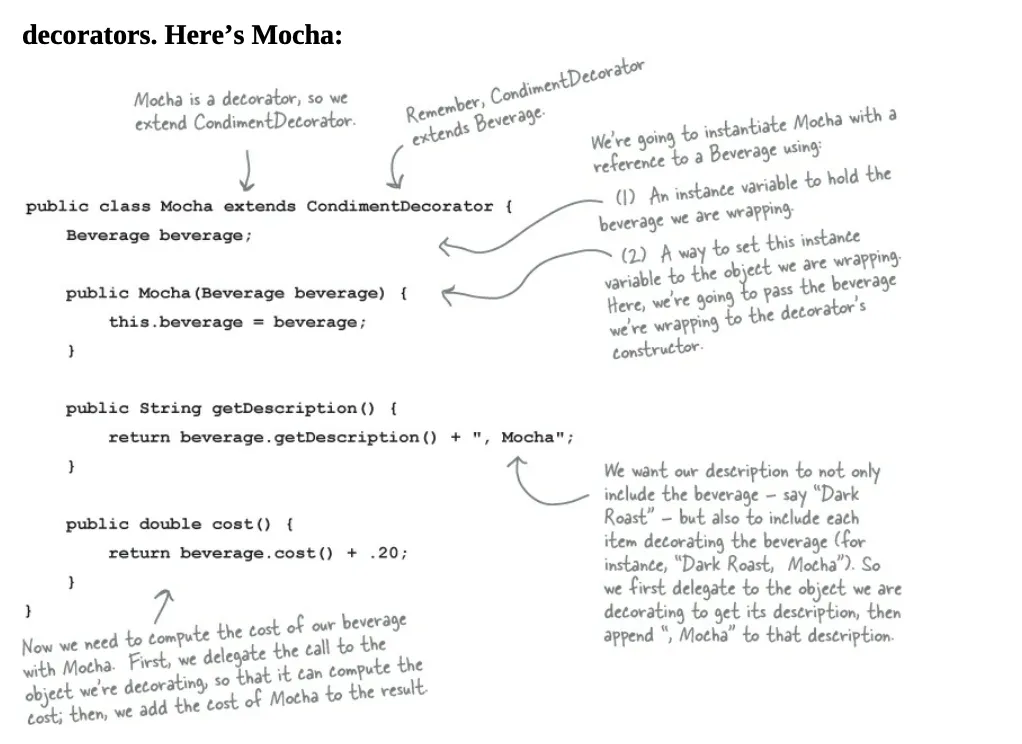 decorators. Here’s Mocha:
Mocha is a decorator, so we
extend CondimentDecorator.
Remember, CondimentDecorator
extends Beverage.
We're going to instantiate Mocha with a
reference to a Beverage using:
(1) An instance variable to hold the
beverage we are wrapping.
(2) A way to set this instance
variable to the object we are wrapping.
Here, we're going to pass the beverage
we're wrapping to the decorator's
constructor.
public class Mocha extends CondimentDecorator {
Beverage beverage;
public Mocha(Beverage beverage) {
this.beverage = beverage;
}
public String getDescription() {
return beverage.getDescription() + ", Mocha";
}
We want our description to not only
include the beverage – say “Dark
Roast” – but also to include each
item decorating the beverage (for
instance, “Dark Roast, Mocha”). So
we first delegate to the object we are
decorating to get its description, then
append “, Mocha” to that description.
public double cost() {
return beverage.cost() + .20;
}
}
Now we need to compute the cost of our beverage
with Mocha. First, we delegate the call to the
object we're decorating, so that it can compute the
cost; then, we add the cost of Mocha to the result.